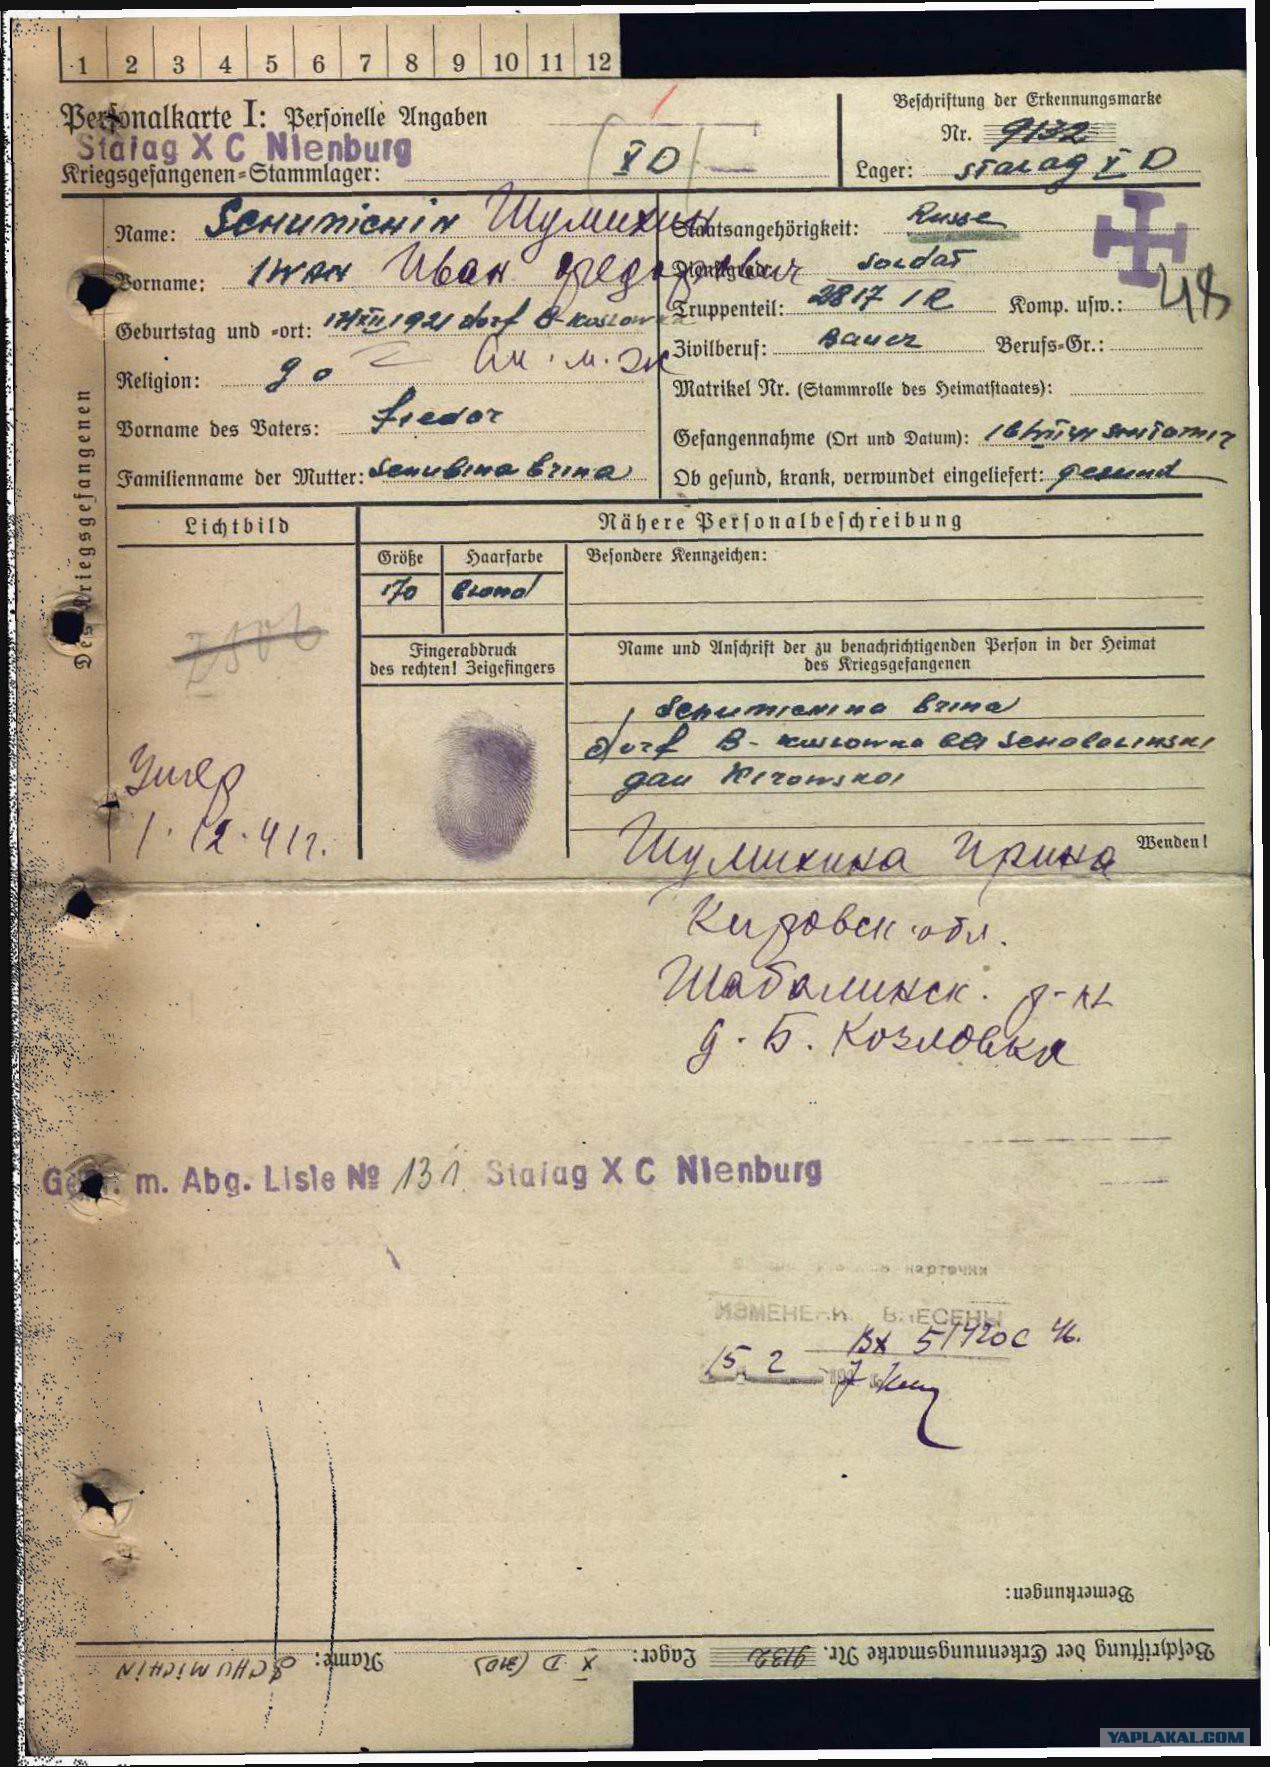 1 2 3 4 5 6 7 8 9 10 11 12
Personalkarte I: Personelle Angaben
Stalag X C Nienburg
Kriegsgefangenen-Stammlager: X D
Beschriftung der Erkennungsmarke
Nr. 9132
Lager: Stalag X D
Des Kriegsgefangenen
Name: Schumichin Шумихин
Vorname: Iwan Иван Федорович
Geburtstag und -ort: 1921 dorf B-Koslowka
Religion: go
Vorname des Vaters: Fiedor
Familienname der Mutter:
Staatsangehörigkeit: Russe
Dienstgrad: Soldat
Truppenteil: 2817 IR Komp. usw.:
48
Zivilberuf: Bauer Berufs-Gr.:
Matrikel Nr. (Stammrolle des Heimatstaates):
Gefangennahme (Ort und Datum):
Ob gesund, krank, verwundet eingeliefert: gesund
Lichtbild
Nähere Personalbeschreibung
Größe Haarfarbe Besondere Kennzeichen:
170 blond
Fingerabdruck
des rechten! Zeigefingers
Name und Anschrift der zu benachrichtigenden Person in der Heimat
des Kriegsgefangenen
Schumichina Erina
dorf B-Koslowka
gau Kirowskoi
Умер
1.12.41г.
Wenden!
Шумихина Ирина
Кировск. обл.
Шабалинск. р-н
д. Б. Козловка
m. Abg. Liste № 131 Stalag X C Nienburg
карточки
ВНЕСЕНЫ
Вх 51420с 46.
15 2
Bemerkungen:
Beschriftung der Erkennungsmarke Nr. 9132 Lager: X D (310) Name: SCHUMICHIN
YAPLAKAL.COM